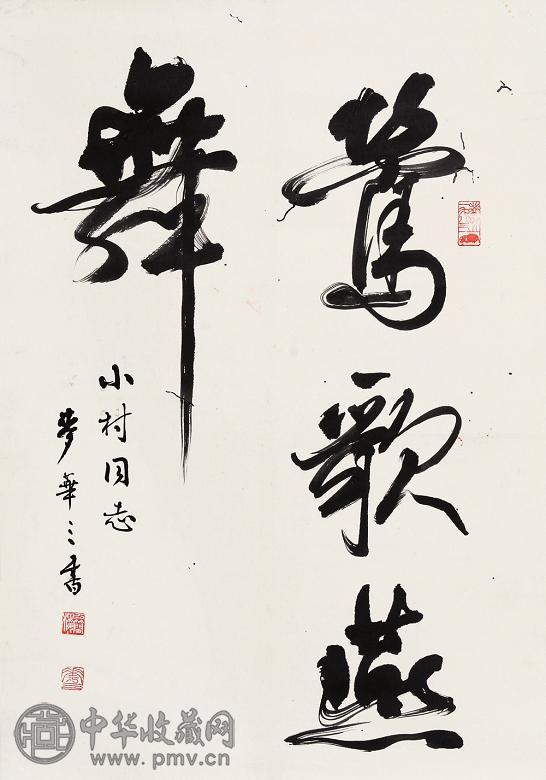 鶯歌燕
舞
小村同志
夢華之書
中华收藏网
www.pmv.cn